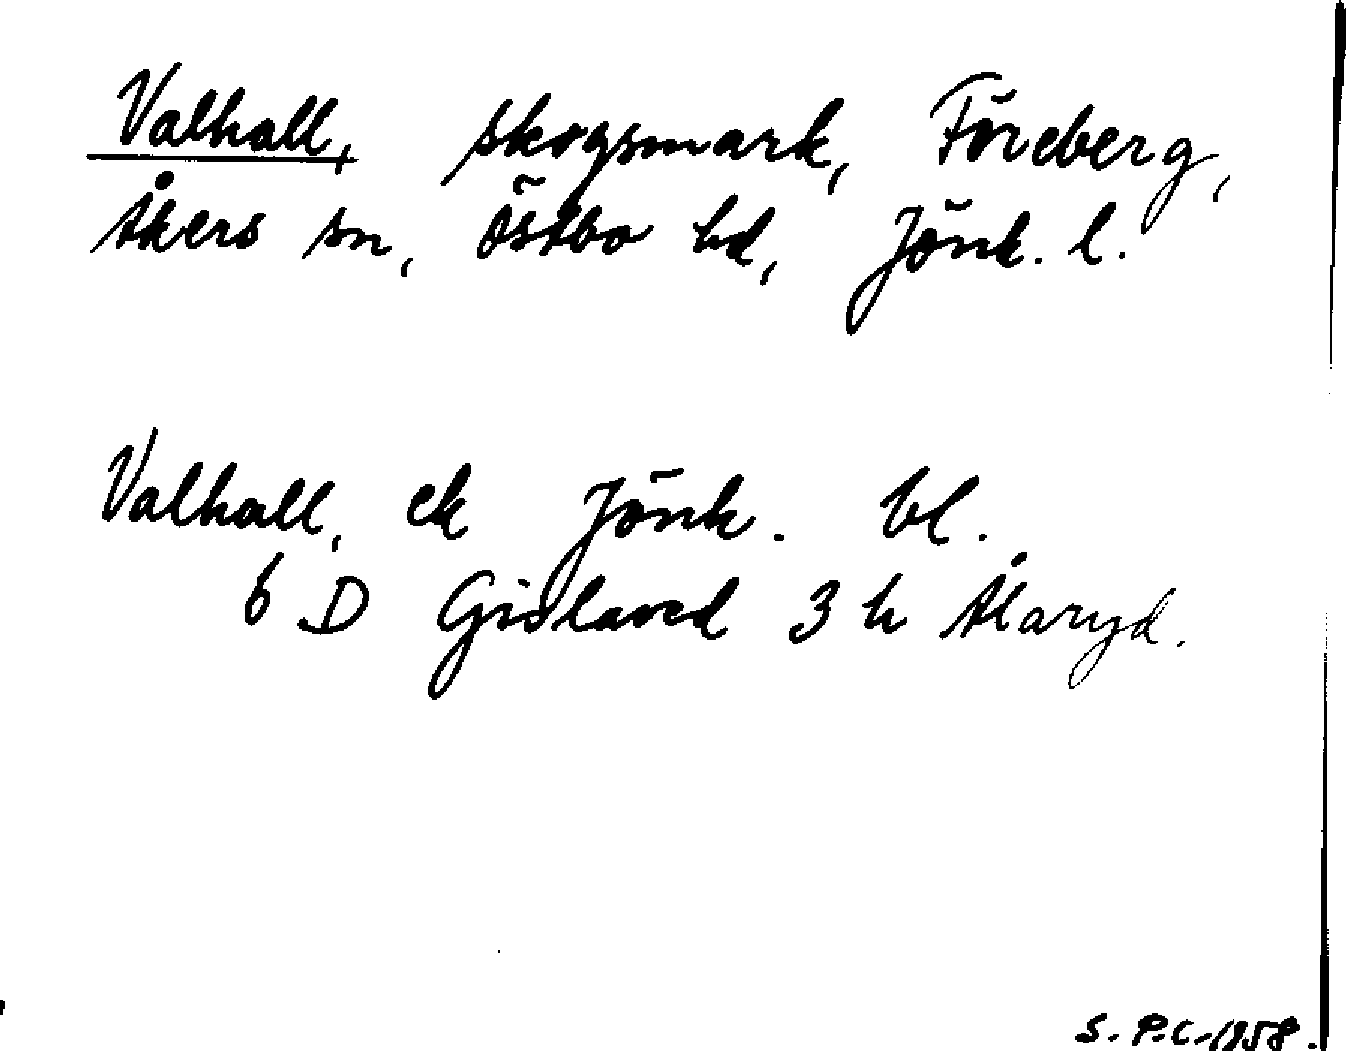 Valhall, skogsmark, Föreberg,
Åkers sn, Östbo hd, Jönk. l.
Valhall, ek Jönk. bl.
6 D Gislaved 3 h Ålaryd.
S. P.C. 1958.